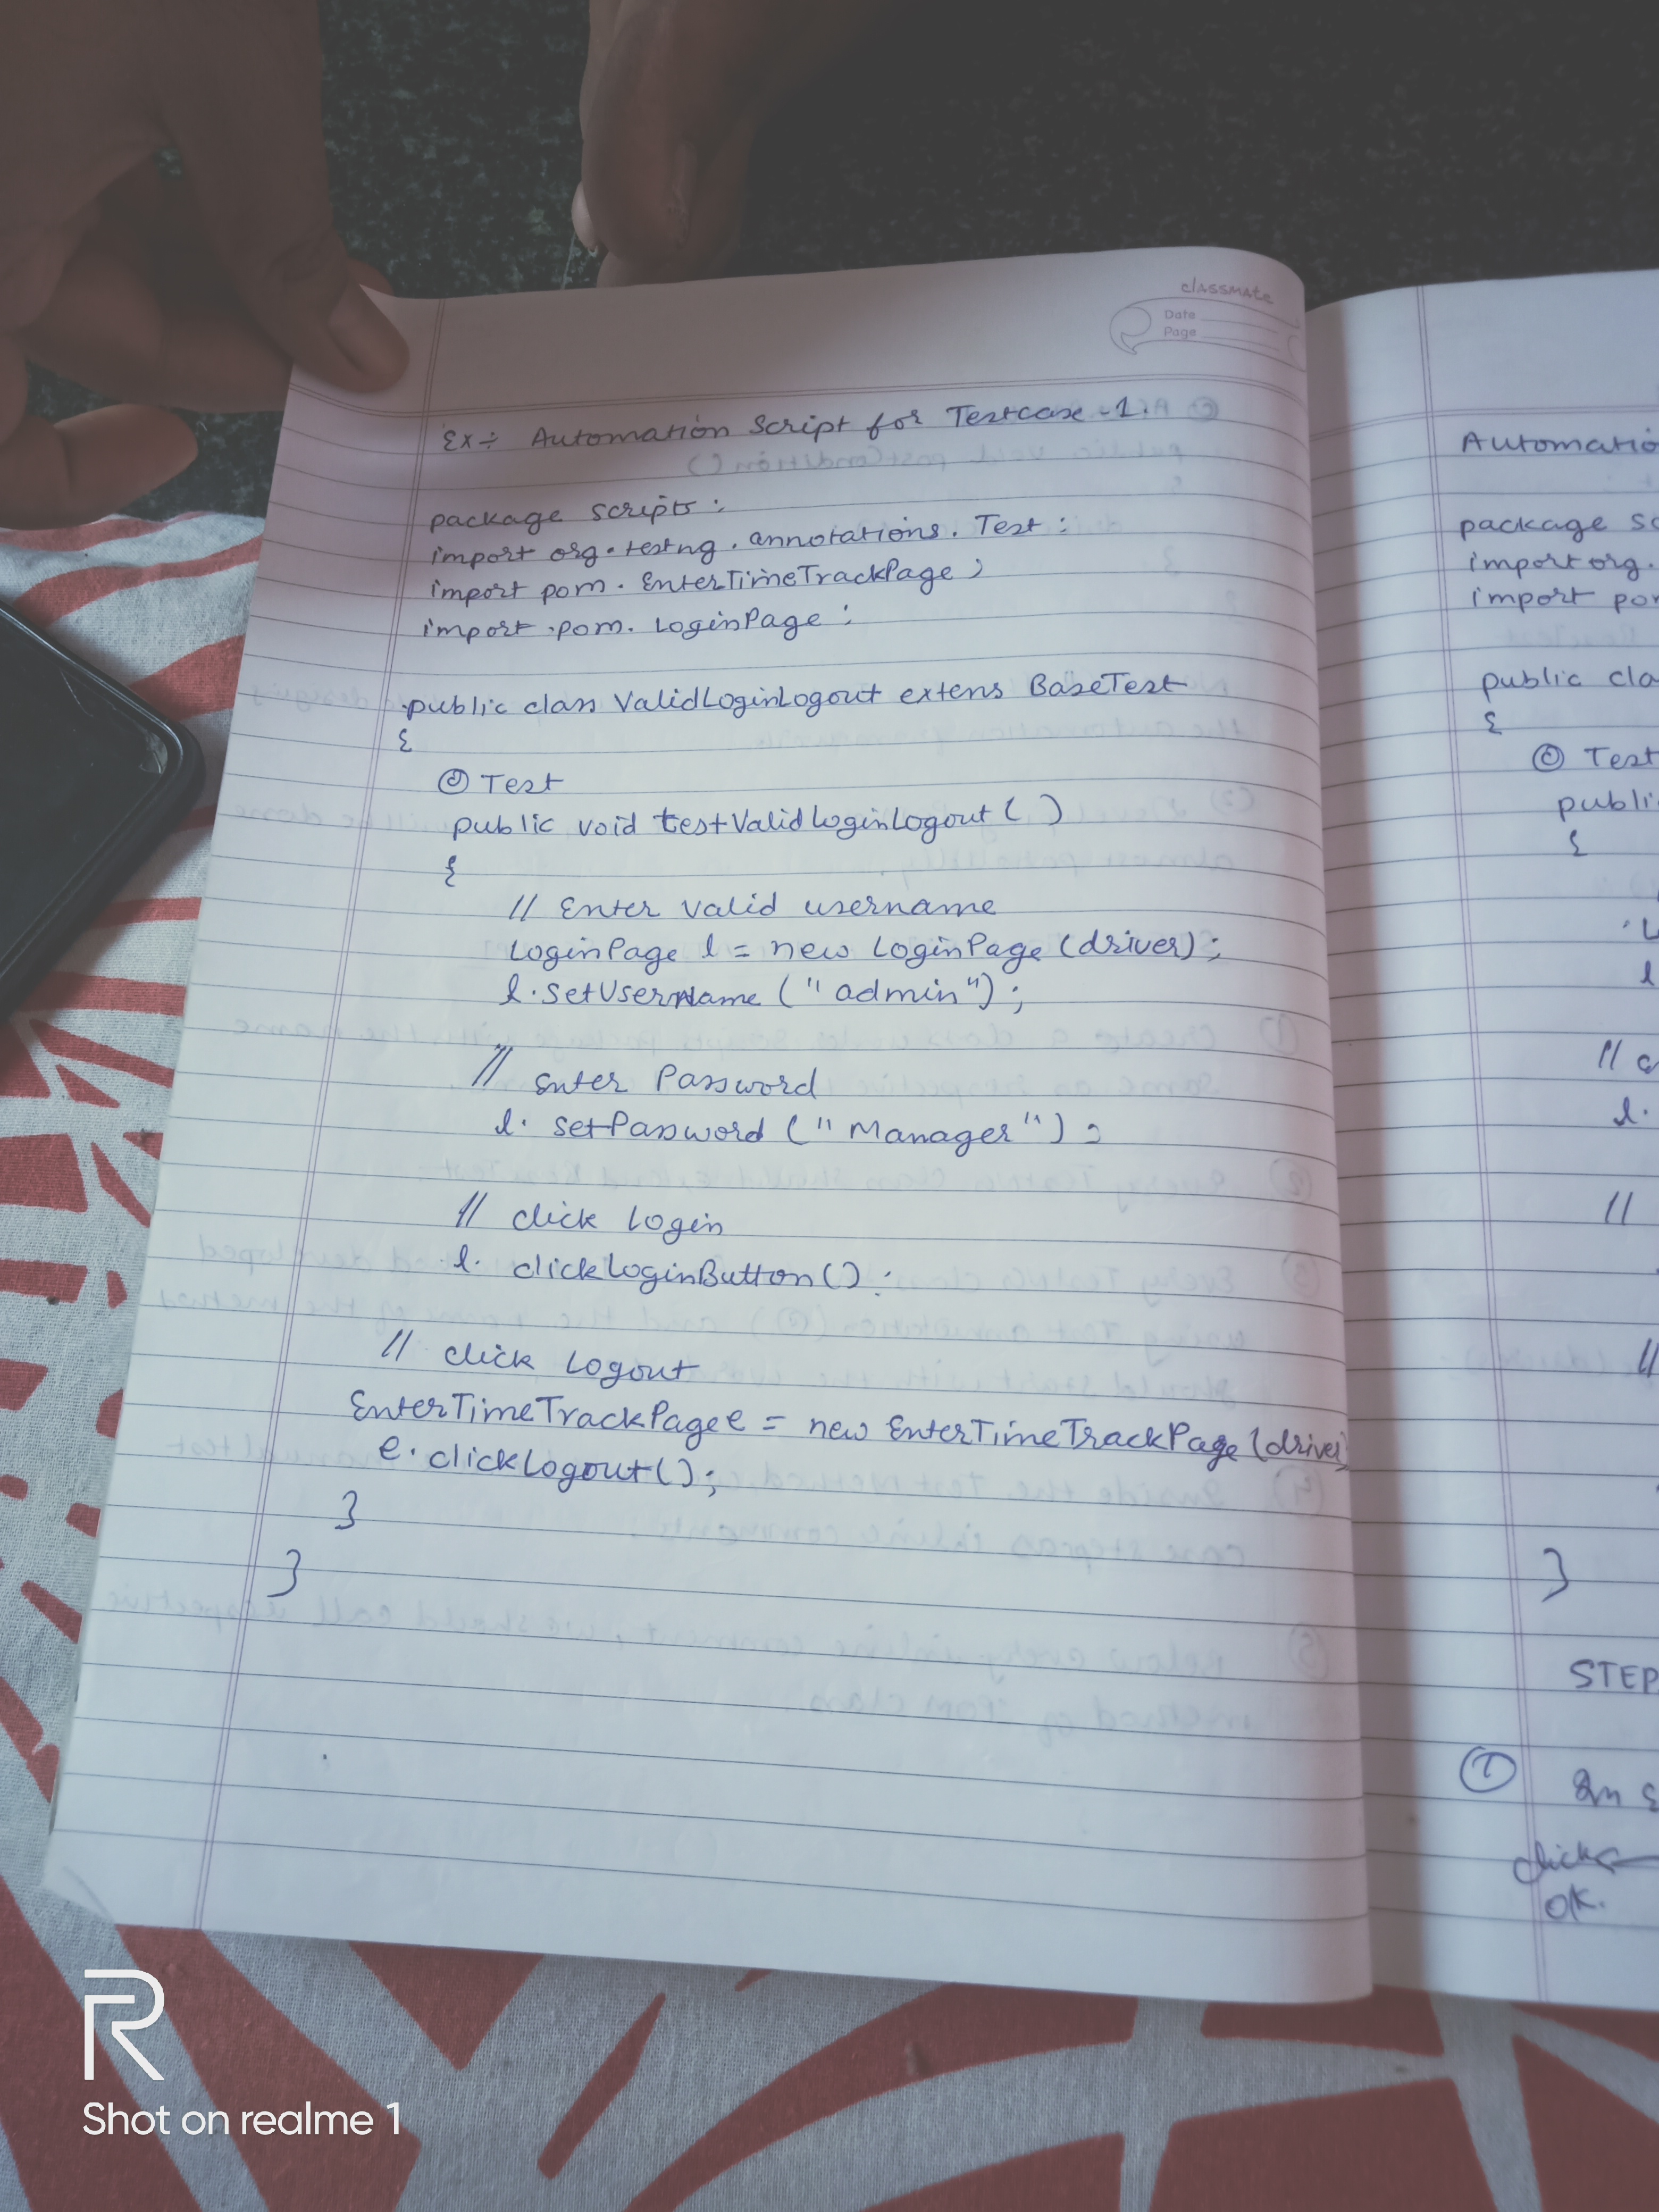 classmate
Date
Page
Ex:- Automation Script for Testcase -1.
package scripts ;
import org.testng.annotations.Test ;
import pom.EnterTimeTrackPage ;
import pom.LoginPage ;
public class ValidLoginLogout extens BaseTest
{
@ Test
public void testValidLoginLogout ( )
{
// Enter valid username
LoginPage l = new LoginPage (driver) ;
l.setUserName ("admin") ;
// Enter Password
l. setPassword ("Manager") ;
// click login
l. clickLoginButton() ;
// click Logout
EnterTimeTrackPage e = new EnterTimeTrackPage (driver)
e.clickLogout() ;
}
}
Automatio
package sc
import org.
import po
public cla
{
@ Test
publi
{
l
//
l.
//
//
}
STEP
1 In
click
OK.
R
Shot on realme 1